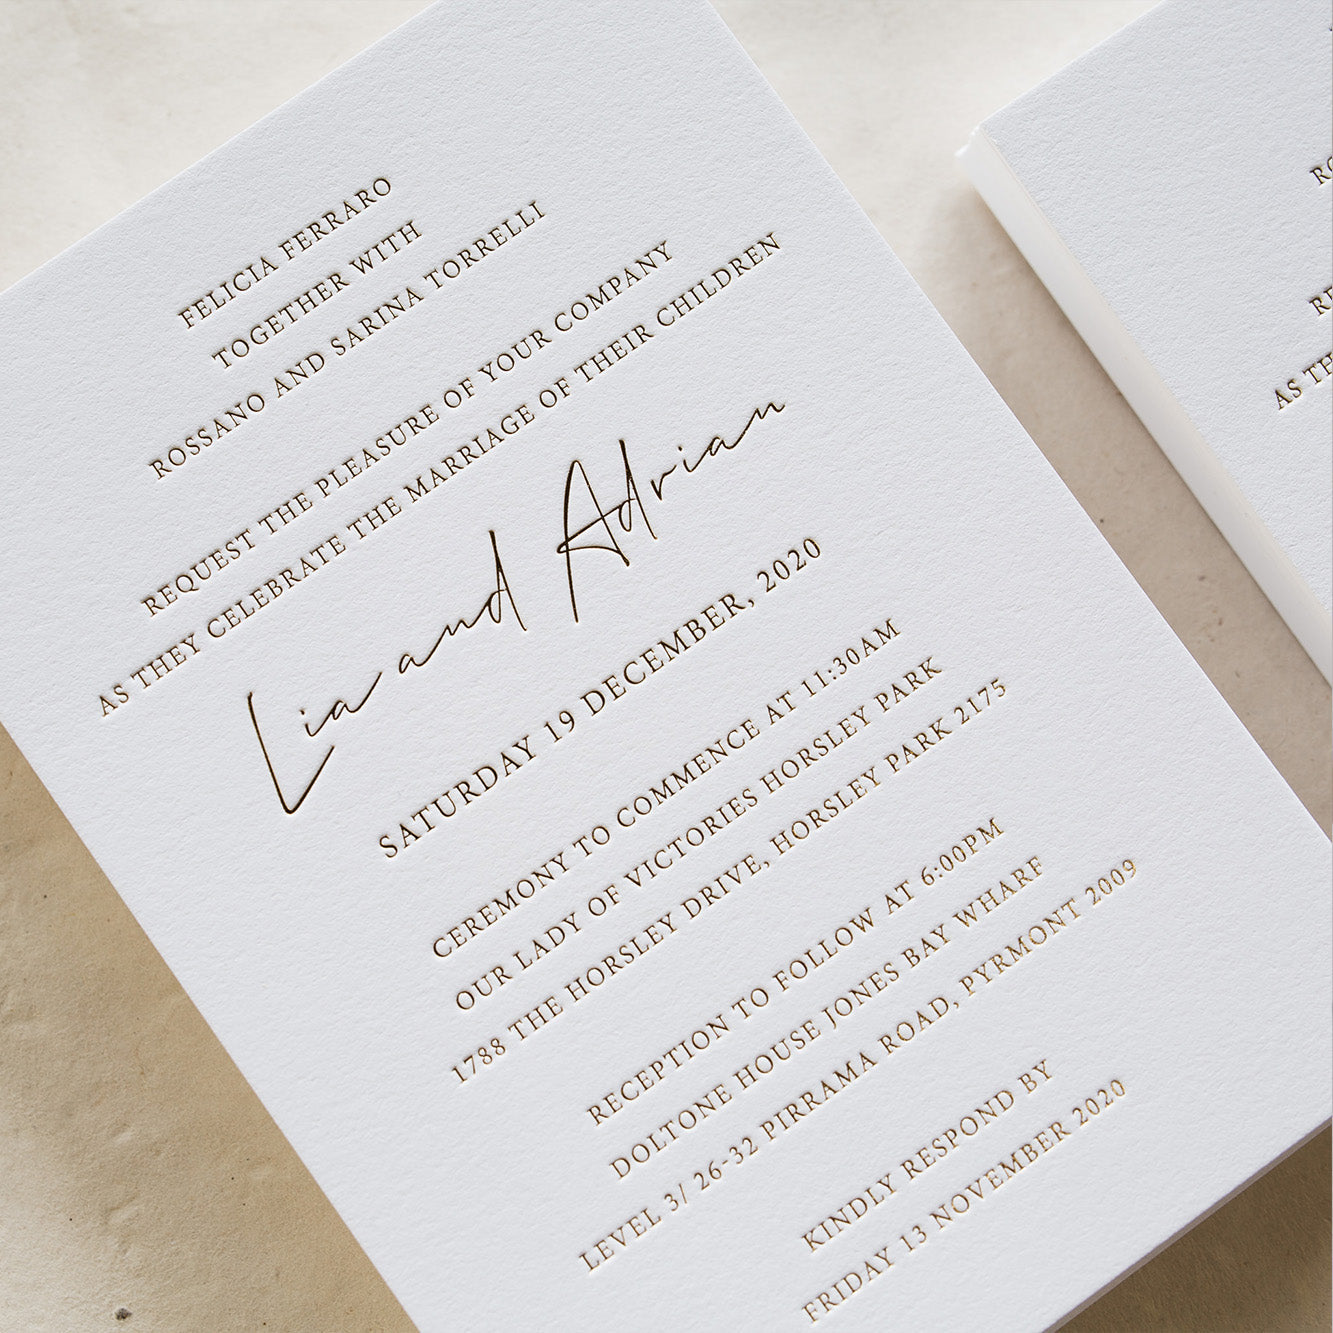 FELICIA FERRARO
TOGETHER WITH
ROSSANO AND SARINA TORRELLI
REQUEST THE PLEASURE OF YOUR COMPANY
AS THEY CELEBRATE THE MARRIAGE OF THEIR CHILDREN
Lia and Adrian
SATURDAY 19 DECEMBER, 2020
CEREMONY TO COMMENCE AT 11:30AM
OUR LADY OF VICTORIES HORSLEY PARK
1788 THE HORSLEY DRIVE, HORSLEY PARK 2175
RECEPTION TO FOLLOW AT 6:00PM
DOLTONE HOUSE JONES BAY WHARF
LEVEL 3/ 26-32 PIRRAMA ROAD, PYRMONT 2009
KINDLY RESPOND BY
FRIDAY 13 NOVEMBER 2020
AS